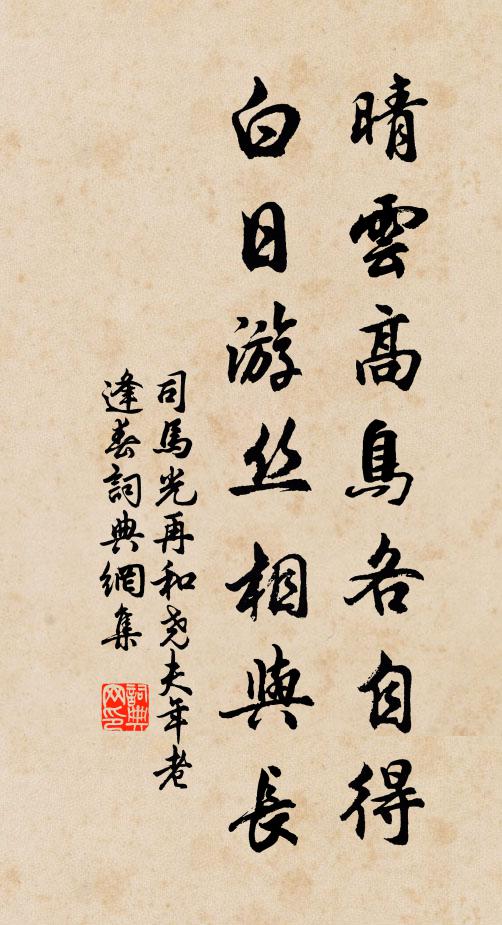 晴雲高鳥各自得
白日游丝相與長
司馬光再和尧夫年老
逢春詞典網集
詞典网印